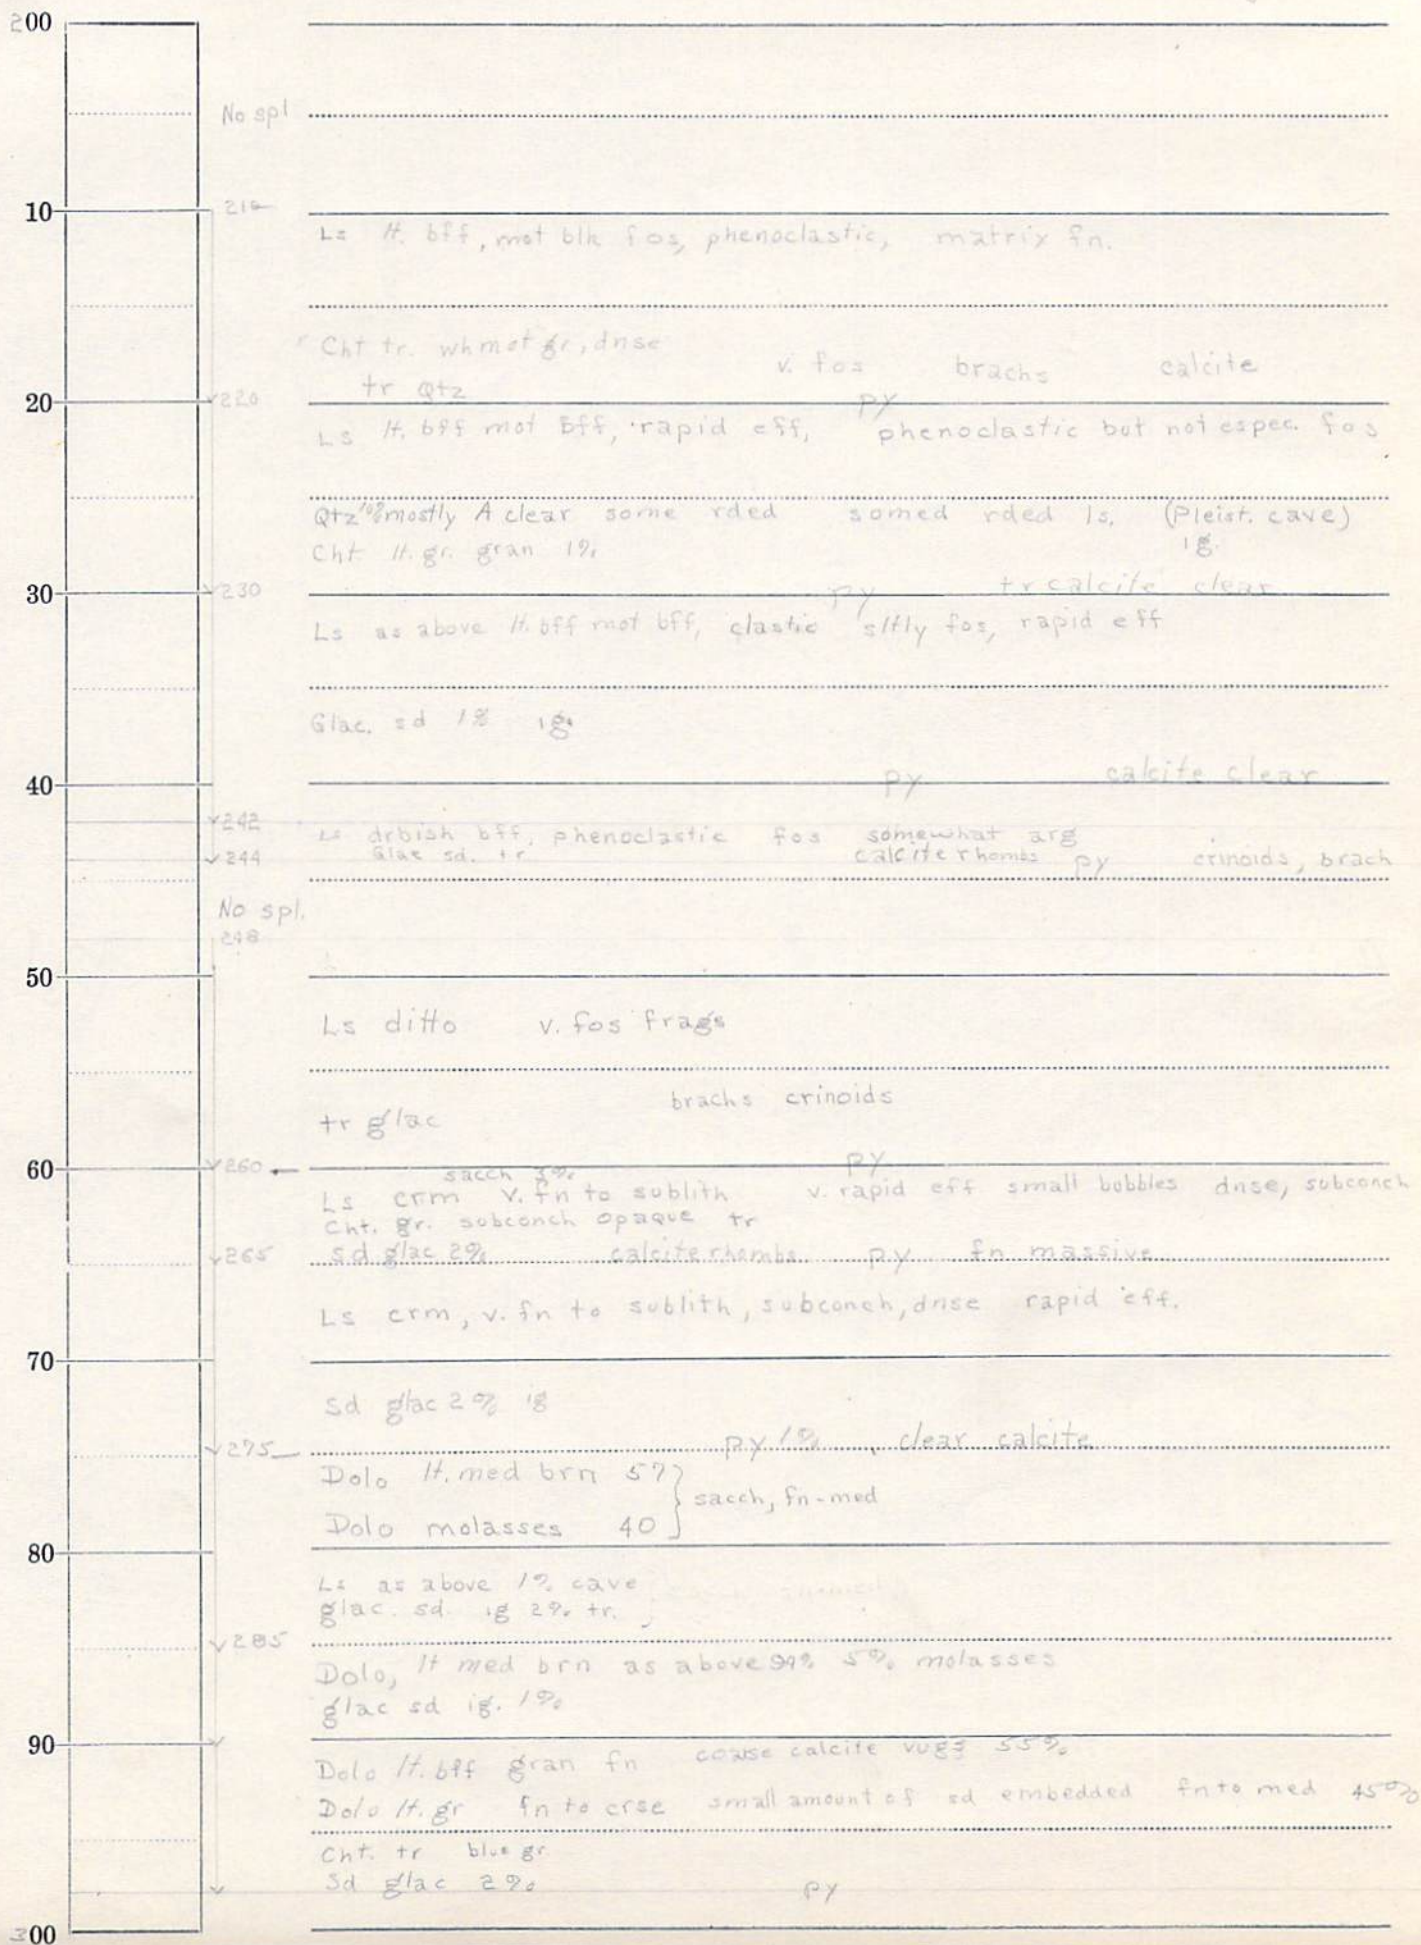 200
No spl
10
210
Ls lt. bff, mot blk fos, phenoclastic, matrix fn.
Cht tr. wh mot gr, dnse
v. fos brachs calcite
tr Qtz
py
20
220
Ls lt. bff mot bff, rapid eff, phenoclastic but not espec. fos
Qtz 10% mostly A clear some rded somed rded ls. (Pleist. cave)
Cht lt. gr. gran 1% ig.
30
230
py tr calcite clear
Ls as above lt. bff mot bff, clastic sltly fos, rapid eff
Glac. sd 1% ig.
40
py calcite clear
242
Ls drbish bff, phenoclastic fos somewhat arg
244
Glac sd. tr calcite rhombs py crinoids, brach
No spl.
248
50
Ls ditto v. fos frags
brachs crinoids
tr glac
60
260
py
sacch 3%
Ls crm v. fn to sublith v. rapid eff small bubbles dnse, subconch
Cht. gr. subconch opaque tr
265
sd glac 2% calcite rhombs py fn massive
Ls crm, v. fn to sublith, subconch, dnse rapid eff.
70
Sd glac 2% ig
275
py 1% clear calcite
Dolo lt. med brn 57
sacch, fn-med
Dolo molasses 40
80
Ls as above 1% cave
glac. sd. ig 2% tr.
285
Dolo, lt med brn as above 94% 5% molasses
glac sd ig. 1%
90
Dolo lt. bff gran fn coarse calcite vugs 55%
Dolo lt. gr fn to crse small amount of sd embedded fn to med 45%
Cht. tr blue gr.
Sd glac 2%
py
300